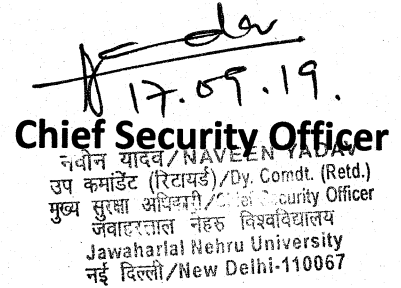 17.09.19.
Chief Security Officer
नवीन यादव/NAVEEN YADAV
उप कमांडेंट (रिटायर्ड)/Dy. Comdt. (Retd.)
मुख्य सुरक्षा अधिकारी/Chief Security Officer
जवाहरलाल नेहरु विश्वविद्यालय
Jawaharlal Nehru University
नई दिल्ली/New Delhi-110067